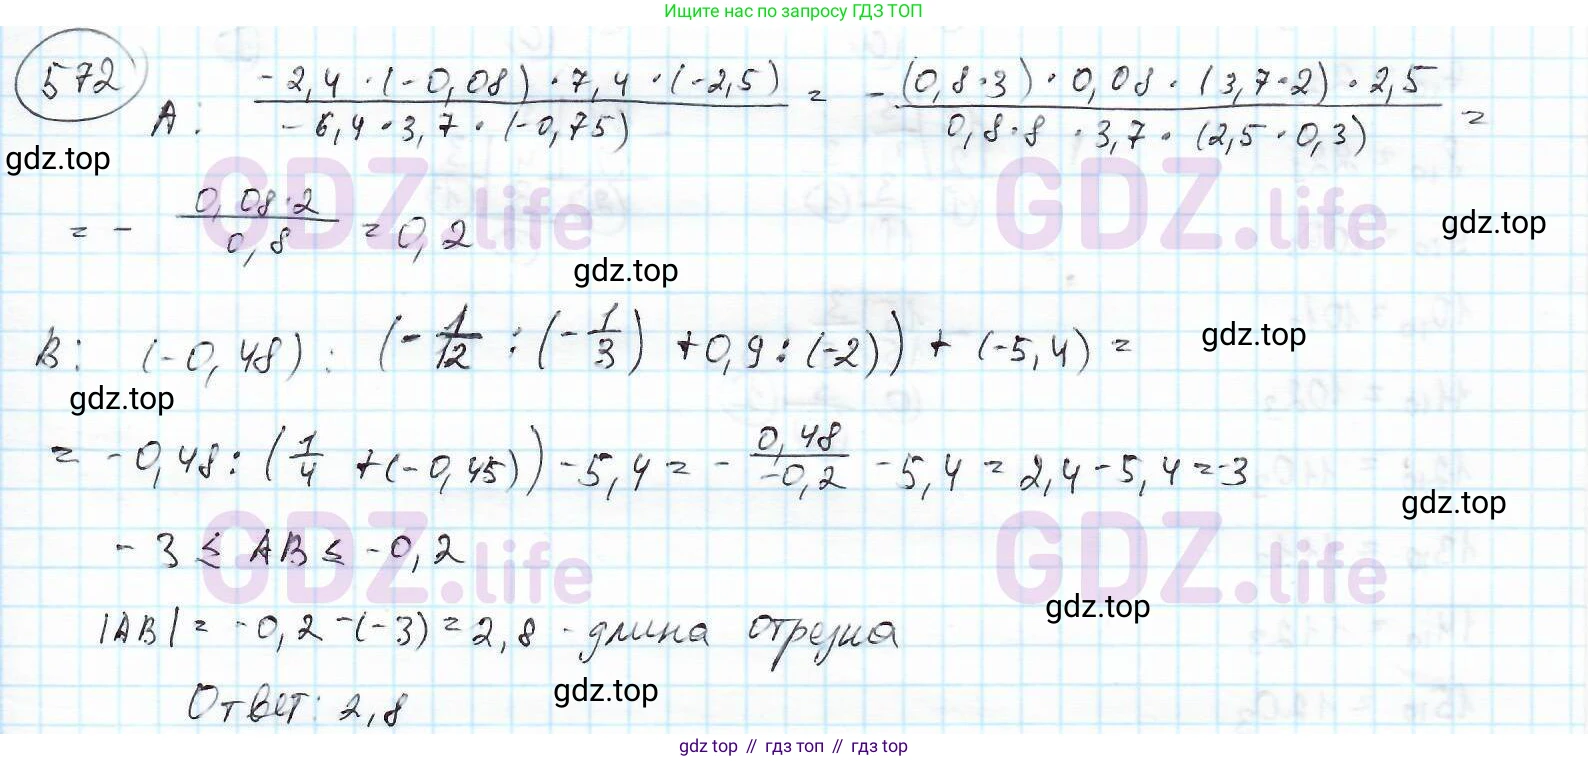 Ищите нас по запросу ГДЗ ТОП
572
A: (-2,4 · (-0,08) · 7,4 · (-2,5)) / (-6,4 · 3,7 · (-0,75)) = - ((0,8·3) · 0,08 · (3,7·2) · 2,5) / (0,8·8 · 3,7 · (2,5 · 0,3)) =
gdz.top
GDZ.life GDZ.life
= - (0,08·2) / 0,8 = 0,2
gdz.top
gdz.top
B: (-0,48) : (-1/12 : (-1/3) + 0,9 : (-2)) + (-5,4) =
gdz.top
gdz.top
= -0,48 : (1/4 + (-0,45)) - 5,4 = - 0,48 / -0,2 - 5,4 = 2,4 - 5,4 = -3
gdz.top
- 3 ≤ AB ≤ -0,2
GDZ.life GDZ.life
gdz.top
|AB| = -0,2 - (-3) = 2,8 - длина отрезка
gdz.top
Ответ: 2,8
gdz top // гдз топ // гдз top